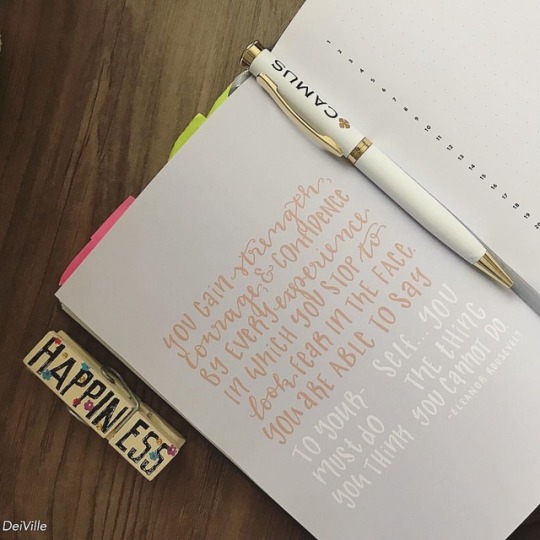 1
2
3
4
5
6
7
8
9
10
11
12
13
14
15
16
17
18
19
20
CAMUS
YOU GAIN strength,
courage, & CONFIDENCE
BY EVERY experience
IN WHICH YOU STOP to
look FEAR IN THE FACE.
YOU ARE ABLE TO SAY
TO YOUR- SELF... YOU
MUST DO THE tHING
YOU THINK YOU CANNOT DO.
-ELEANOR ROOSEVELT
HAPPINESS
DeiVille